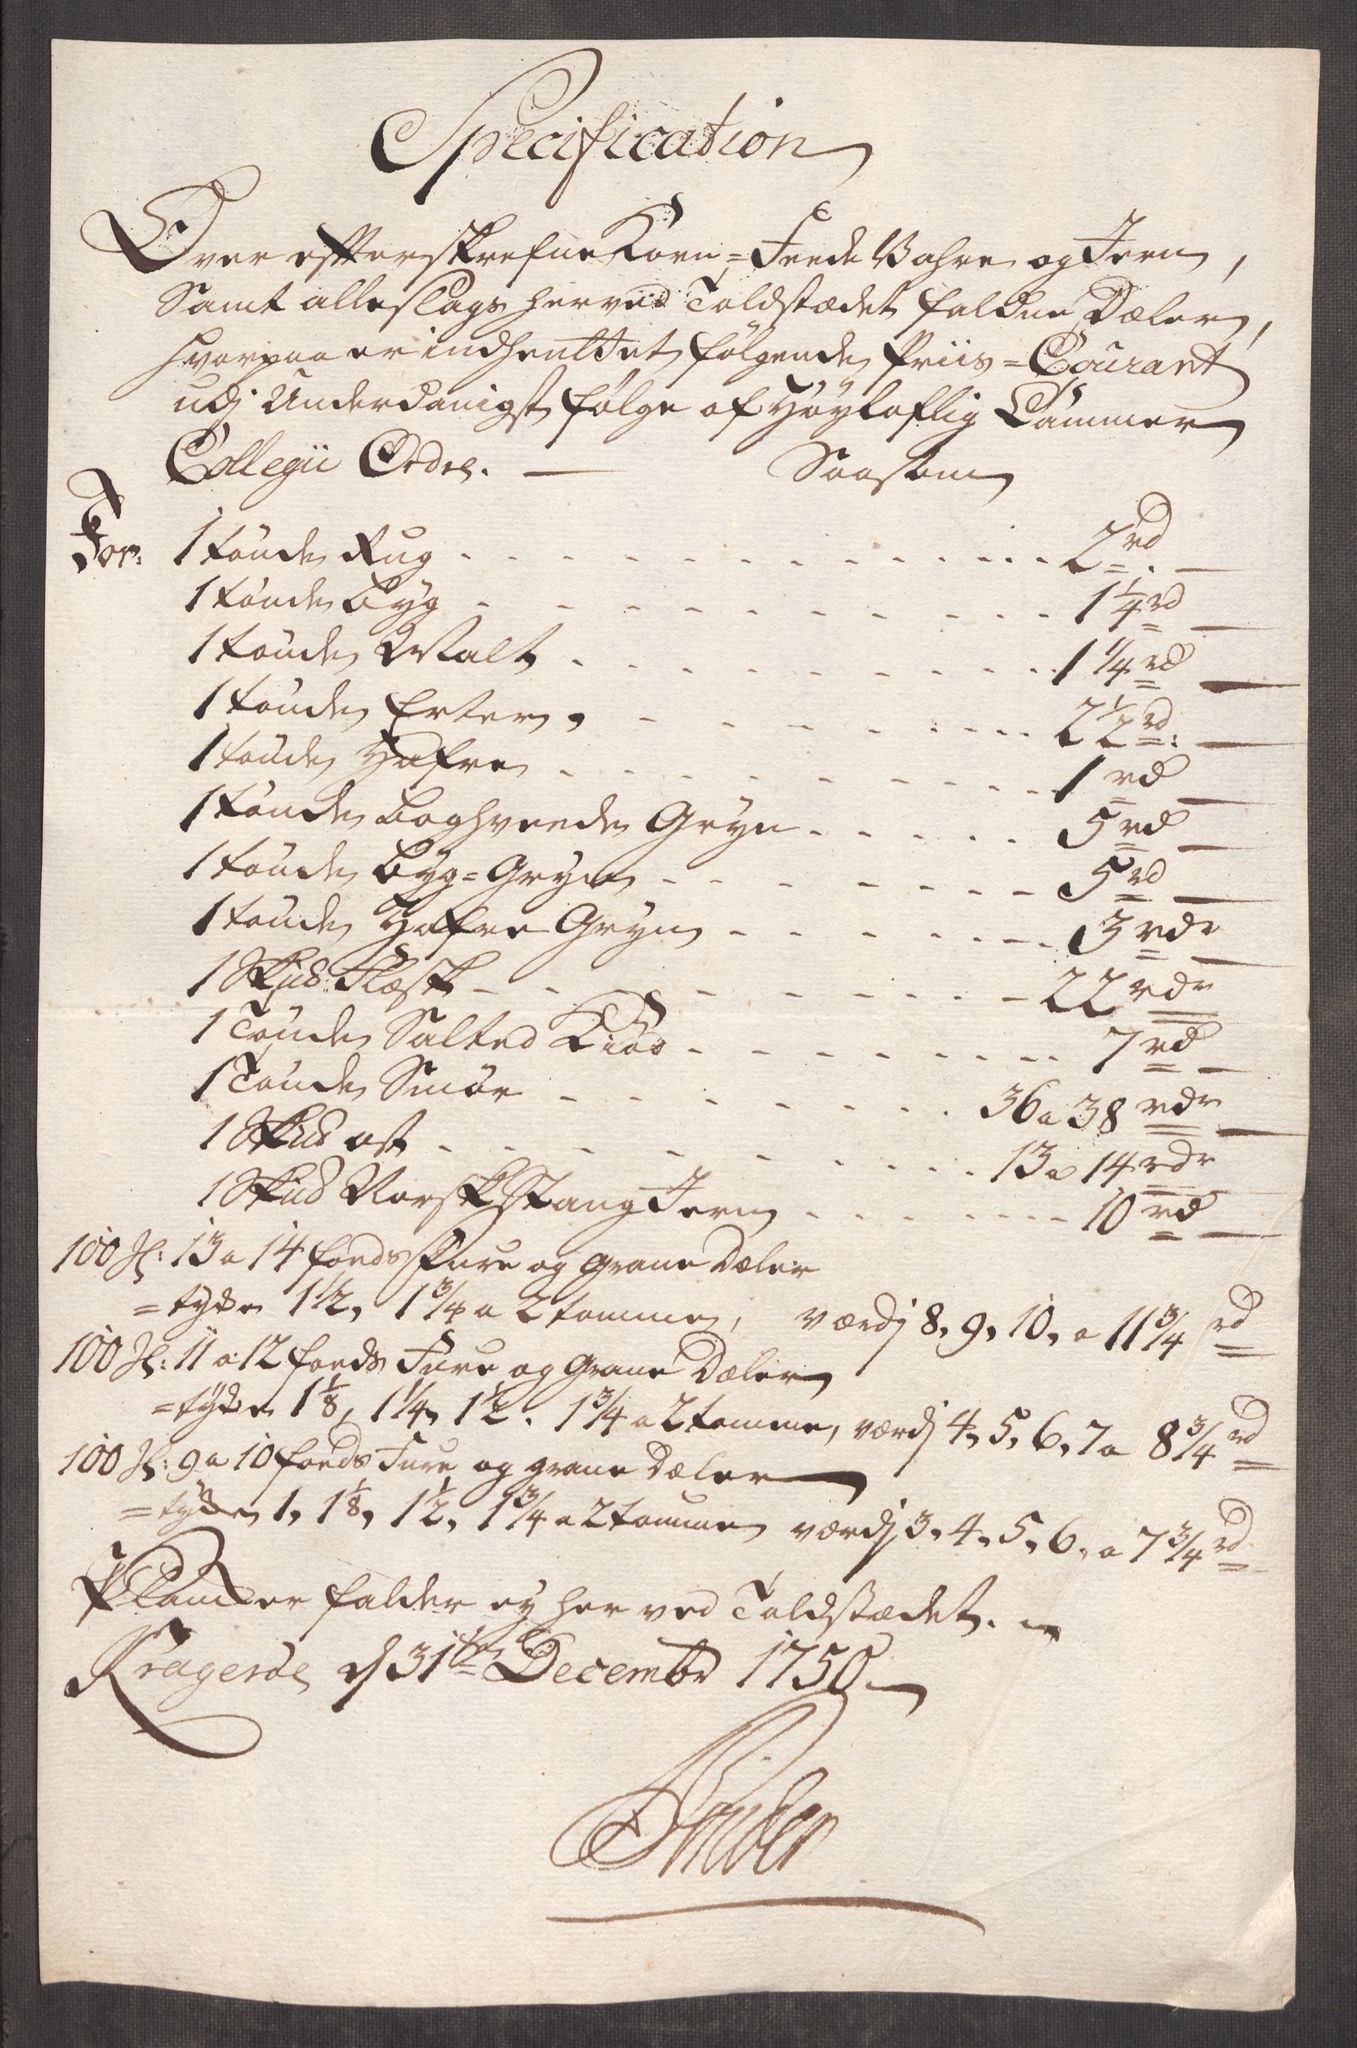 Specification
Over efterskrefne Korn = Feede Vahre og Jern,
Samt alle slags her ved Toldstædet faldne Dæler,
hvorpaa er indhentet følgende Priis = Courant
udj Underdanigst følge af Høyloflig Cammer
Collegii Ordre. — Saasom
For: 1 tønde Rug . . . 2 rd. —
1 tønde Byg . . . 1 1/4 rd —
1 tønde Malt . . . 1 1/4 rd —
1 tønde Erter . . . 2 1/2 rd: —
1 tønde Hafre . . . 1 rd —
1 tønde Boghveede Gryn . . . 5 rd —
1 tønde Byg = Gryn . . . 5 rd —
1 tønde Hafre Gryn . . . 3 rdr —
1 Skud: Flæsk . . . 22 rdr
1 Tønde Salted Kiød . . . 7 rd —
1 Tønde Smør . . . 36 a 38 rdr —
1 Skud ost . . . 13 a 14 rdr
1 Skud Norsk Stang Jern . . . 10 rd —
100 St: 13 a 14 fods Fure og Grane Dæler
= tyke 1 1/2, 1 3/4 a 2 tomme, værdj 8, 9, 10, a 11 3/4 rd
100 St: 11 a 12 fods Fure og Grane Dæler
= tyke 1 1/8, 1 1/4, 1 1/2. 1 3/4 a 2 tomme, værdj 4, 5, 6, 7 a 8 3/4 rd
100 St: 9 a 10 fods Fure og grane Dæler —
= tyke 1, 1 1/8, 1 1/2, 1 3/4 a 2 tomme værdj 3, 4, 5, 6, a 7 3/4 rd
Plancker falder ey her ved Toldstædet. —
Kragerøe d 31te Decembr 1750 —